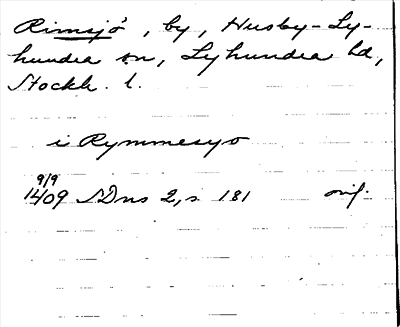 Rimsjö, by, Husby-Ly-
hundra sn, Lyhundra hd,
Stockh. l.
i Rymmesyo
9/9
1409 SDns 2, s 181 orig.